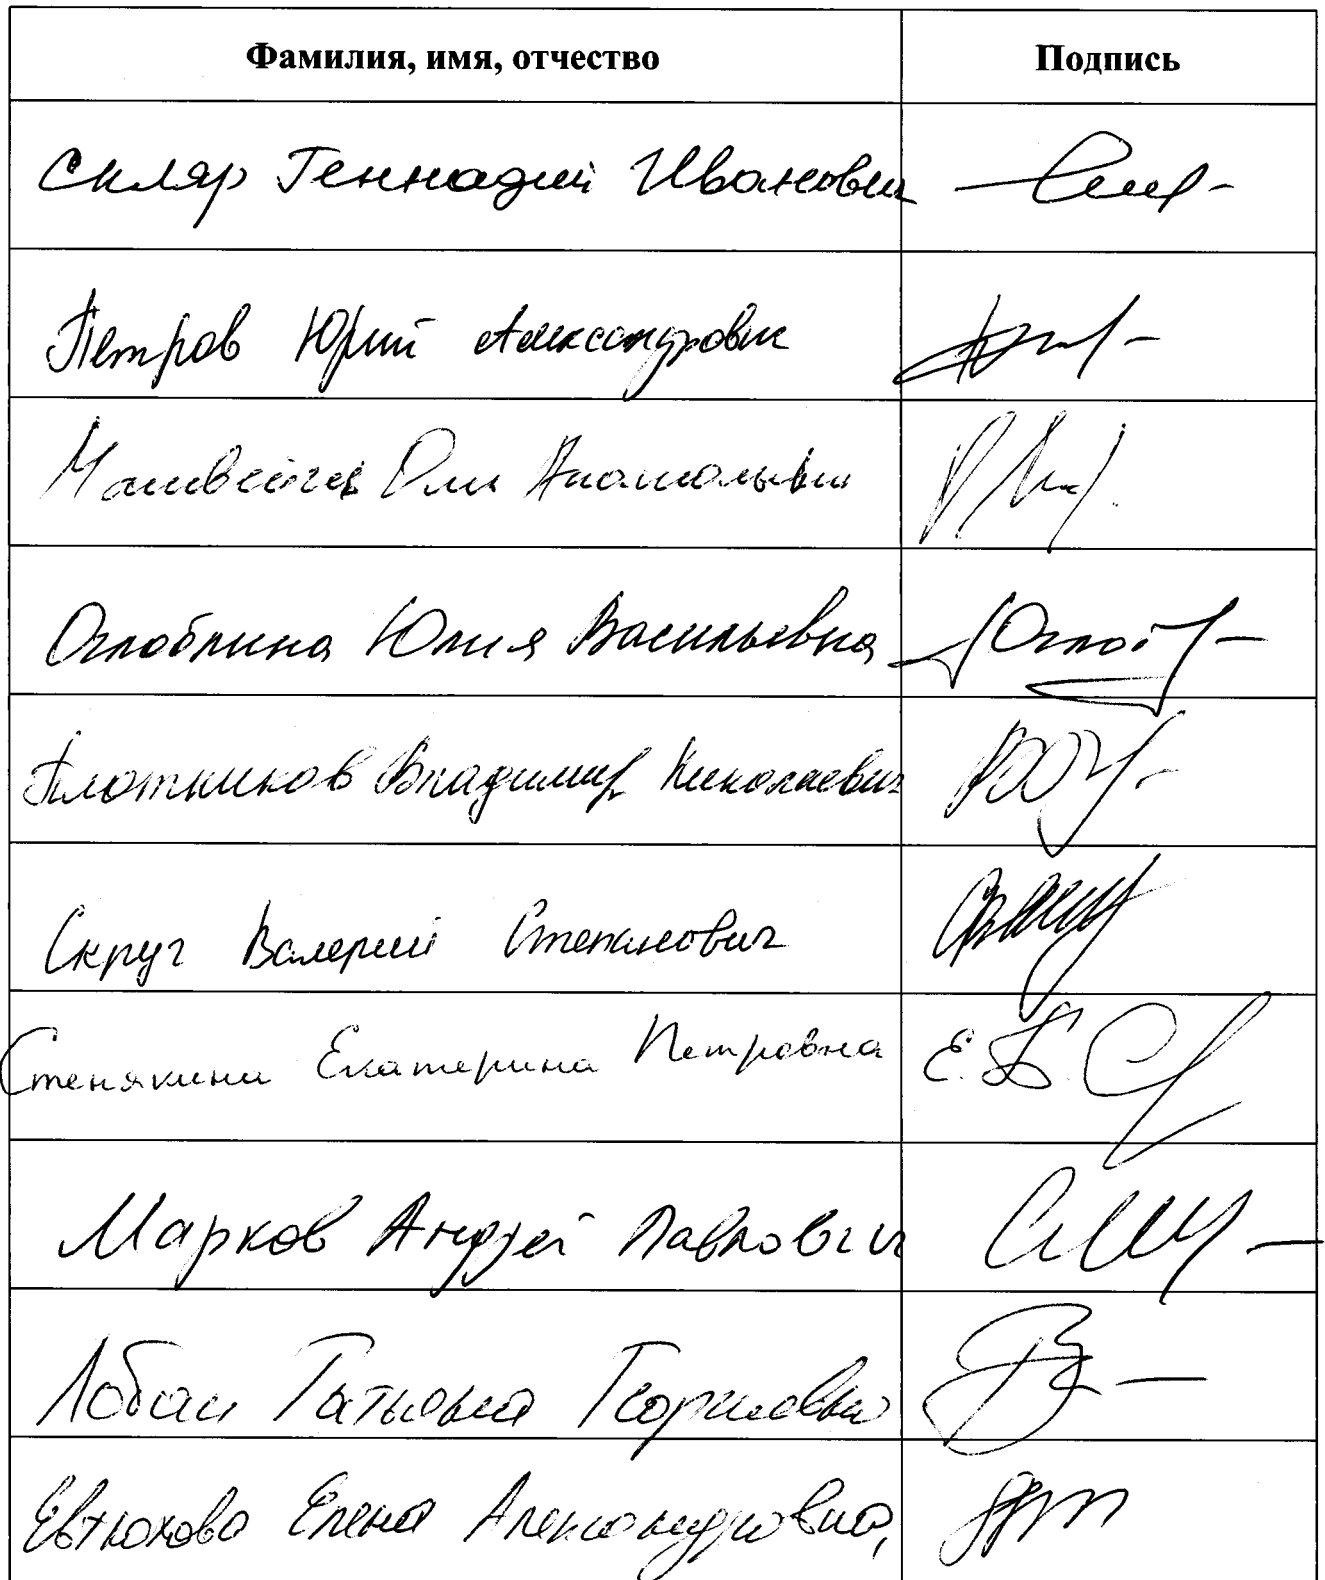 Фамилия, имя, отчество Подпись
Скляр Геннадий Иванович
Петров Юрий Александрович
Матвейчев Олег Анатольевич
Оглоблина Юлия Васильевна
Плотников Владимир Николаевич
Скруг Валерий Степанович
Стенякина Екатерина Петровна Е.П.С
Марков Андрей Павлович
Лобач Татьяна Георгиевна
Евтюхова Елена Александровна,